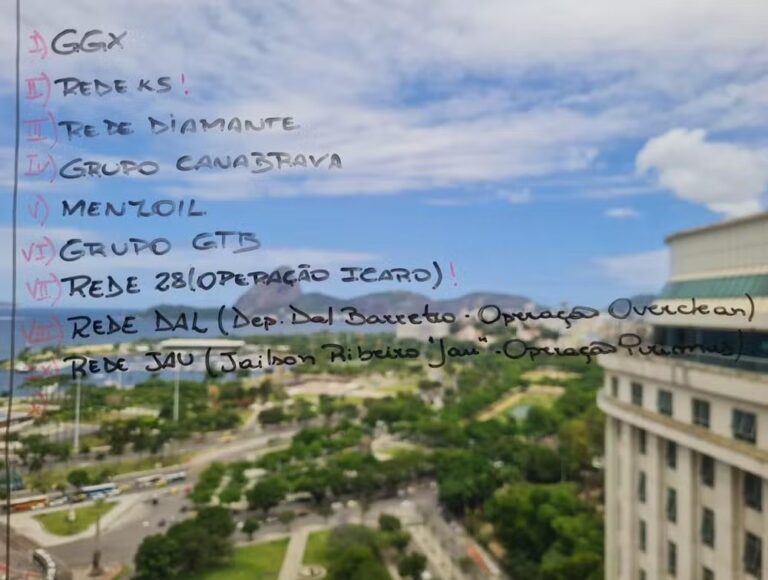 I) GGX
II) REDE KS!
III) REDE DIAMANTE
IV) GRUPO CANABRAVA
V) MENZOIL
VI) GRUPO GTB
VII) REDE 28 (OPERAÇÃO ICARO)!
VIII) REDE DAL (Dep. Dal Barretto - Operação Overclean)
IX) REDE JAU (Jailson Ribeiro "Jau" - Operação